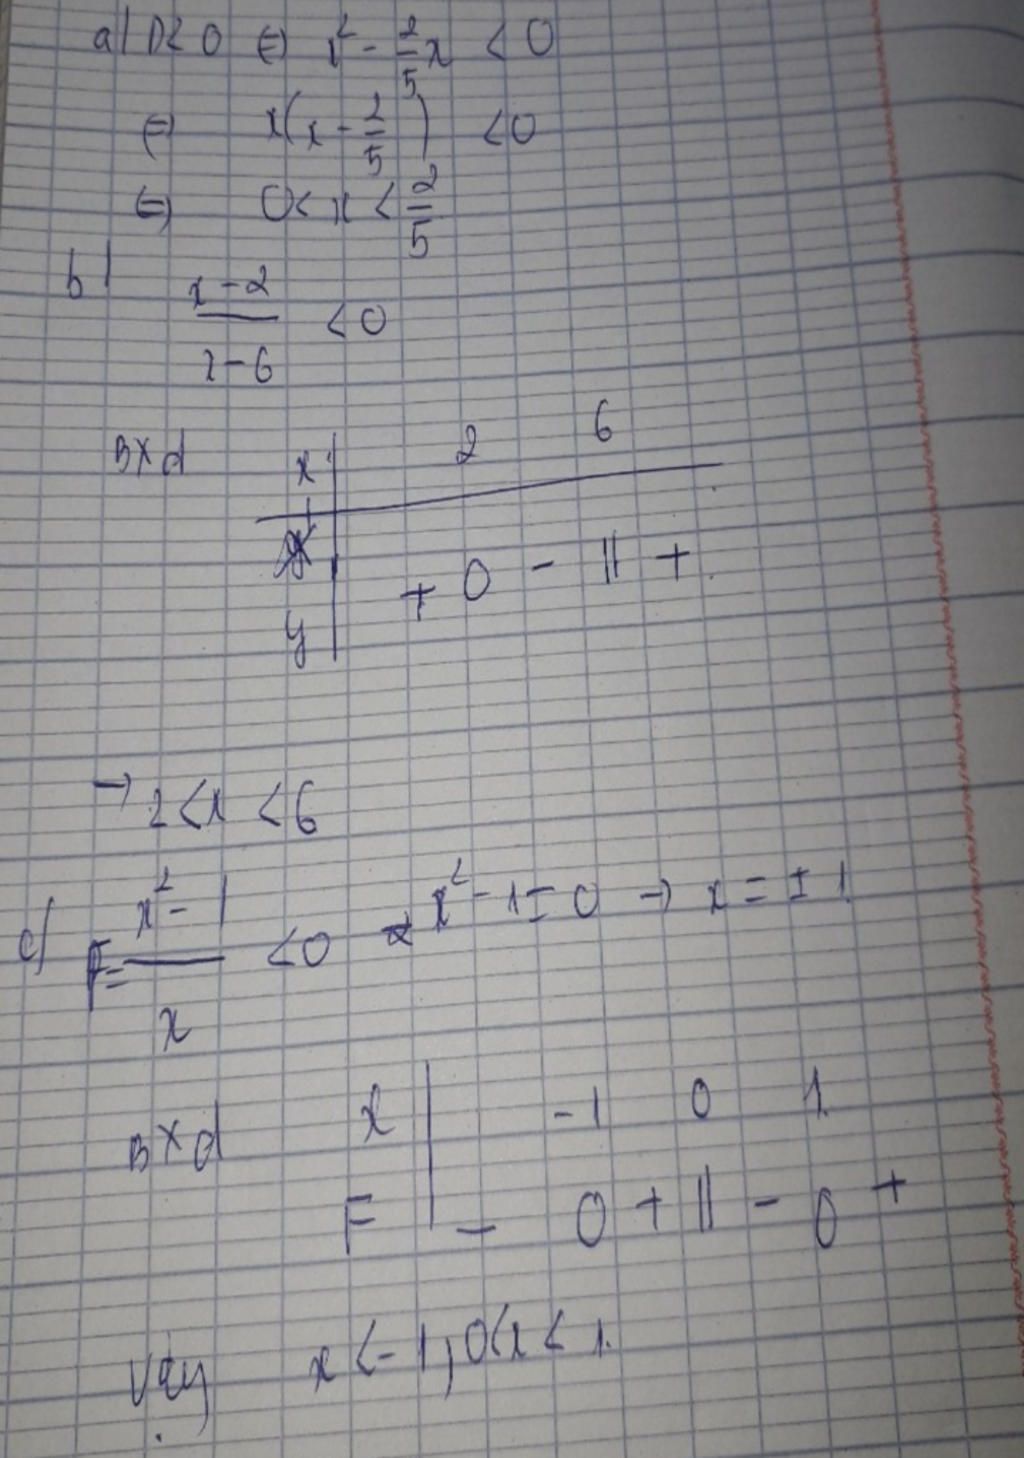 a) D < 0 ⇔ x² - 2/5 x < 0
⇔ x(x - 2/5) < 0
⇔ 0 < x < 2/5
b) (x-2)/(x-6) < 0
BXd x | 2 6
y | + 0 - || +
→ 2 < x < 6
c) F = (x² - 1)/x < 0 x² - 1 = 0 → x = ± 1
BXd x | -1 0 1
F | - 0 + || - 0 +
Vậy x < -1, 0 < x < 1.